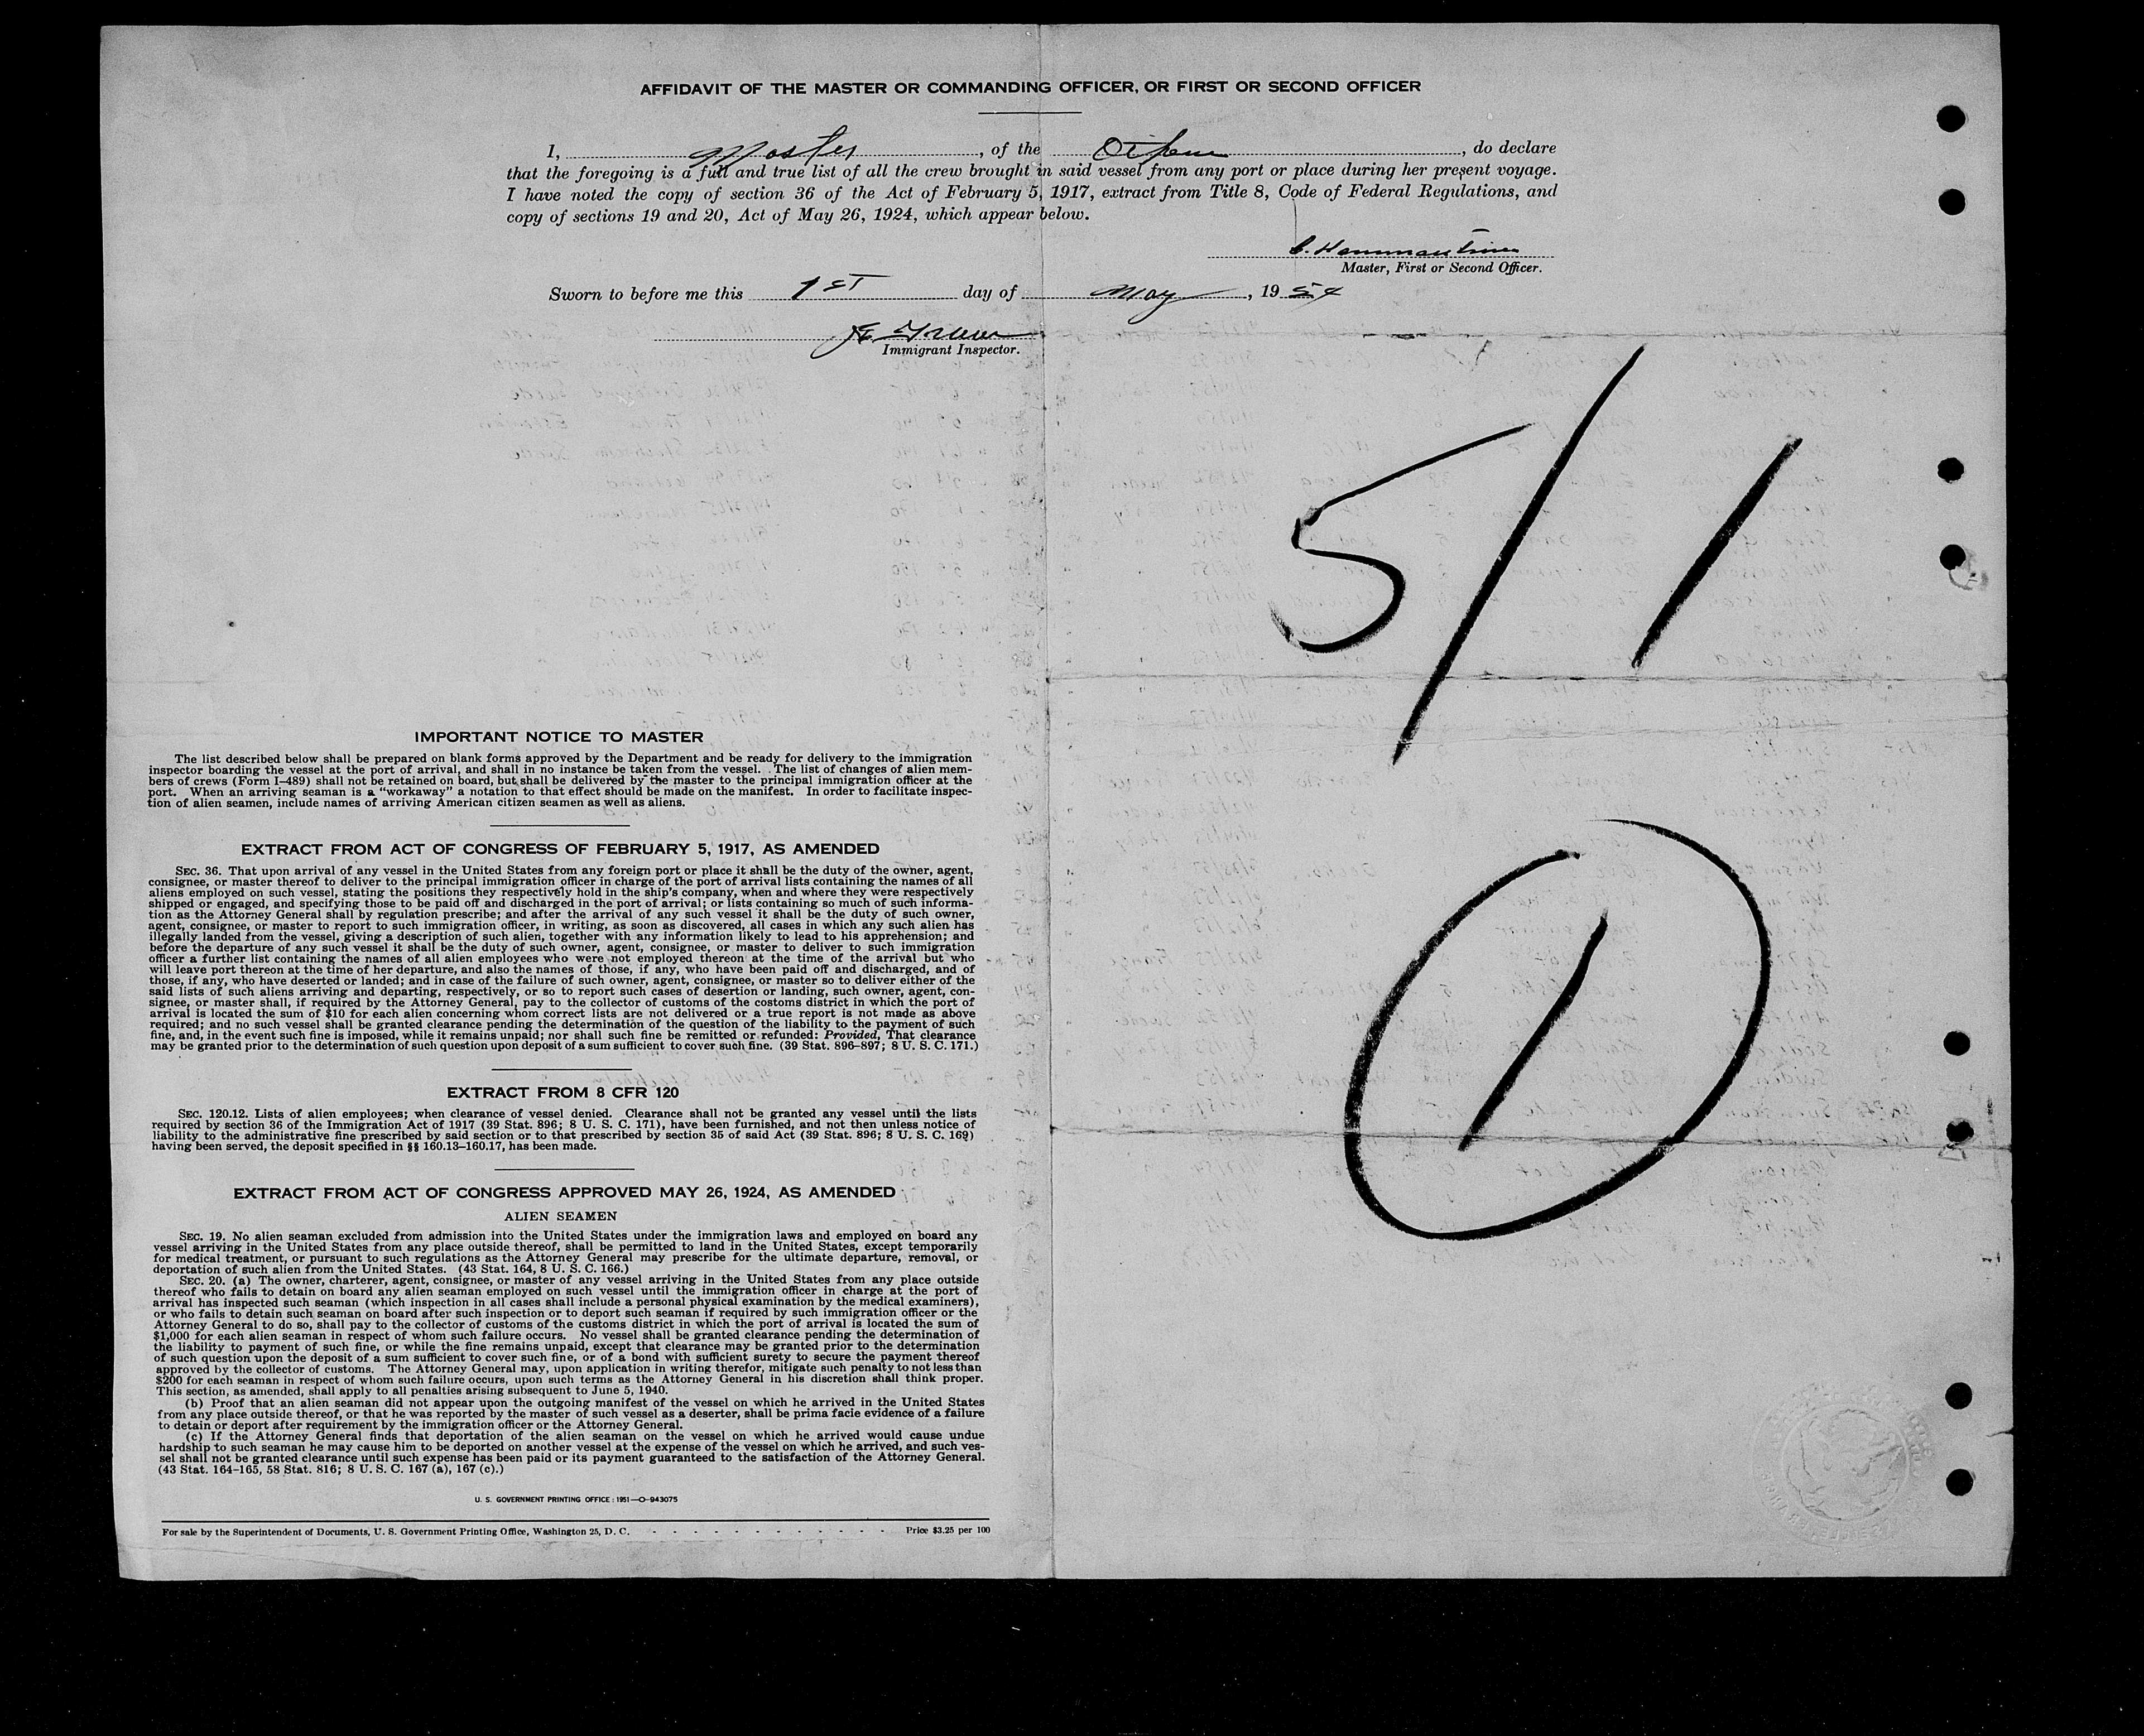 AFFIDAVIT OF THE MASTER OR COMMANDING OFFICER, OR FIRST OR SECOND OFFICER
I, Master, of the , do declare
that the foregoing is a full and true list of all the crew brought in said vessel from any port or place during her present voyage.
I have noted the copy of section 36 of the Act of February 5, 1917, extract from Title 8, Code of Federal Regulations, and
copy of sections 19 and 20, Act of May 26, 1924, which appear below.
Master, First or Second Officer.
Sworn to before me this 1ST day of May, 1954
Immigrant Inspector.
5/1
1
IMPORTANT NOTICE TO MASTER
The list described below shall be prepared on blank forms approved by the Department and be ready for delivery to the immigration
inspector boarding the vessel at the port of arrival, and shall in no instance be taken from the vessel. The list of changes of alien mem-
bers of crews (Form I-489) shall not be retained on board, but shall be delivered by the master to the principal immigration officer at the
port. When an arriving seaman is a "workaway" a notation to that effect should be made on the manifest. In order to facilitate inspec-
tion of alien seamen, include names of arriving American citizen seamen as well as aliens.
EXTRACT FROM ACT OF CONGRESS OF FEBRUARY 5, 1917, AS AMENDED
SEC. 36. That upon arrival of any vessel in the United States from any foreign port or place it shall be the duty of the owner, agent,
consignee, or master thereof to deliver to the principal immigration officer in charge of the port of arrival lists containing the names of all
aliens employed on such vessel, stating the positions they respectively hold in the ship's company, when and where they were respectively
shipped or engaged, and specifying those to be paid off and discharged in the port of arrival; or lists containing so much of such informa-
tion as the Attorney General shall by regulation prescribe; and after the arrival of any such vessel it shall be the duty of such owner,
agent, consignee, or master to report to such immigration officer, in writing, as soon as discovered, all cases in which any such alien has
illegally landed from the vessel, giving a description of such alien, together with any information likely to lead to his apprehension; and
before the departure of any such vessel it shall be the duty of such owner, agent, consignee, or master to deliver to such immigration
officer a further list containing the names of all alien employees who were not employed thereon at the time of the arrival but who
will leave port thereon at the time of her departure, and also the names of those, if any, who have been paid off and discharged, and of
those, if any, who have deserted or landed; and in case of the failure of such owner, agent, consignee, or master so to deliver either of the
said lists of such aliens arriving and departing, respectively, or so to report such cases of desertion or landing, such owner, agent, con-
signee, or master shall, if required by the Attorney General, pay to the collector of customs of the costoms district in which the port of
arrival is located the sum of $10 for each alien concerning whom correct lists are not delivered or a true report is not made as above
required; and no such vessel shall be granted clearance pending the determination of the question of the liability to the payment of such
fine, and, in the event such fine is imposed, while it remains unpaid; nor shall such fine be remitted or refunded: Provided, That clearance
may be granted prior to the determination of such question upon deposit of a sum sufficient to cover such fine. (39 Stat. 896-897; 8 U. S. C. 171.)
EXTRACT FROM 8 CFR 120
SEC. 120.12. Lists of alien employees; when clearance of vessel denied. Clearance shall not be granted any vessel until the lists
required by section 36 of the Immigration Act of 1917 (39 Stat. 896; 8 U. S. C. 171), have been furnished, and not then unless notice of
liability to the administrative fine prescribed by said section or to that prescribed by section 35 of said Act (39 Stat. 896; 8 U. S. C. 169)
having been served, the deposit specified in §§ 160.13-160.17, has been made.
EXTRACT FROM ACT OF CONGRESS APPROVED MAY 26, 1924, AS AMENDED
ALIEN SEAMEN
SEC. 19. No alien seaman excluded from admission into the United States under the immigration laws and employed on board any
vessel arriving in the United States from any place outside thereof, shall be permitted to land in the United States, except temporarily
for medical treatment, or pursuant to such regulations as the Attorney General may prescribe for the ultimate departure, removal, or
deportation of such alien from the United States. (43 Stat. 164, 8 U. S. C. 166.)
SEC. 20. (a) The owner, charterer, agent, consignee, or master of any vessel arriving in the United States from any place outside
thereof who fails to detain on board any alien seaman employed on such vessel until the immigration officer in charge at the port of
arrival has inspected such seaman (which inspection in all cases shall include a personal physical examination by the medical examiners),
or who fails to detain such seaman on board after such inspection or to deport such seaman if required by such immigration officer or the
Attorney General to do so, shall pay to the collector of customs of the customs district in which the port of arrival is located the sum of
$1,000 for each alien seaman in respect of whom such failure occurs. No vessel shall be granted clearance pending the determination of
the liability to payment of such fine, or while the fine remains unpaid, except that clearance may be granted prior to the determination
of such question upon the deposit of a sum sufficient to cover such fine, or of a bond with sufficient surety to secure the payment thereof
approved by the collector of customs. The Attorney General may, upon application in writing therefor, mitigate such penalty to not less than
$200 for each seaman in respect of whom such failure occurs, upon such terms as the Attorney General in his discretion shall think proper.
This section, as amended, shall apply to all penalties arising subsequent to June 5, 1940.
(b) Proof that an alien seaman did not appear upon the outgoing manifest of the vessel on which he arrived in the United States
from any place outside thereof, or that he was reported by the master of such vessel as a deserter, shall be prima facie evidence of a failure
to detain or deport after requirement by the immigration officer or the Attorney General.
(c) If the Attorney General finds that deportation of the alien seaman on the vessel on which he arrived would cause undue
hardship to such seaman he may cause him to be deported on another vessel at the expense of the vessel on which he arrived, and such ves-
sel shall not be granted clearance until such expense has been paid or its payment guaranteed to the satisfaction of the Attorney General.
(43 Stat. 164-165, 58 Stat. 816; 8 U. S. C. 167 (a), 167 (c).)
U. S. GOVERNMENT PRINTING OFFICE : 1951—O-943075
For sale by the Superintendent of Documents, U. S. Government Printing Office, Washington 25, D. C. - - - - - - - - - - - - Price $3.25 per 100